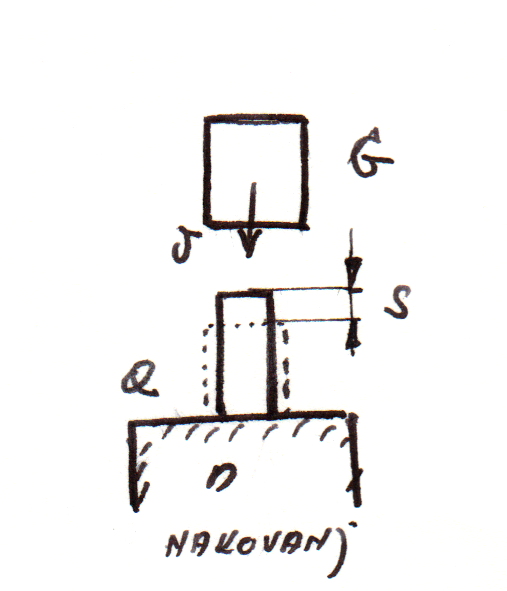 G
v
s
Q
n
NAKOVANJ